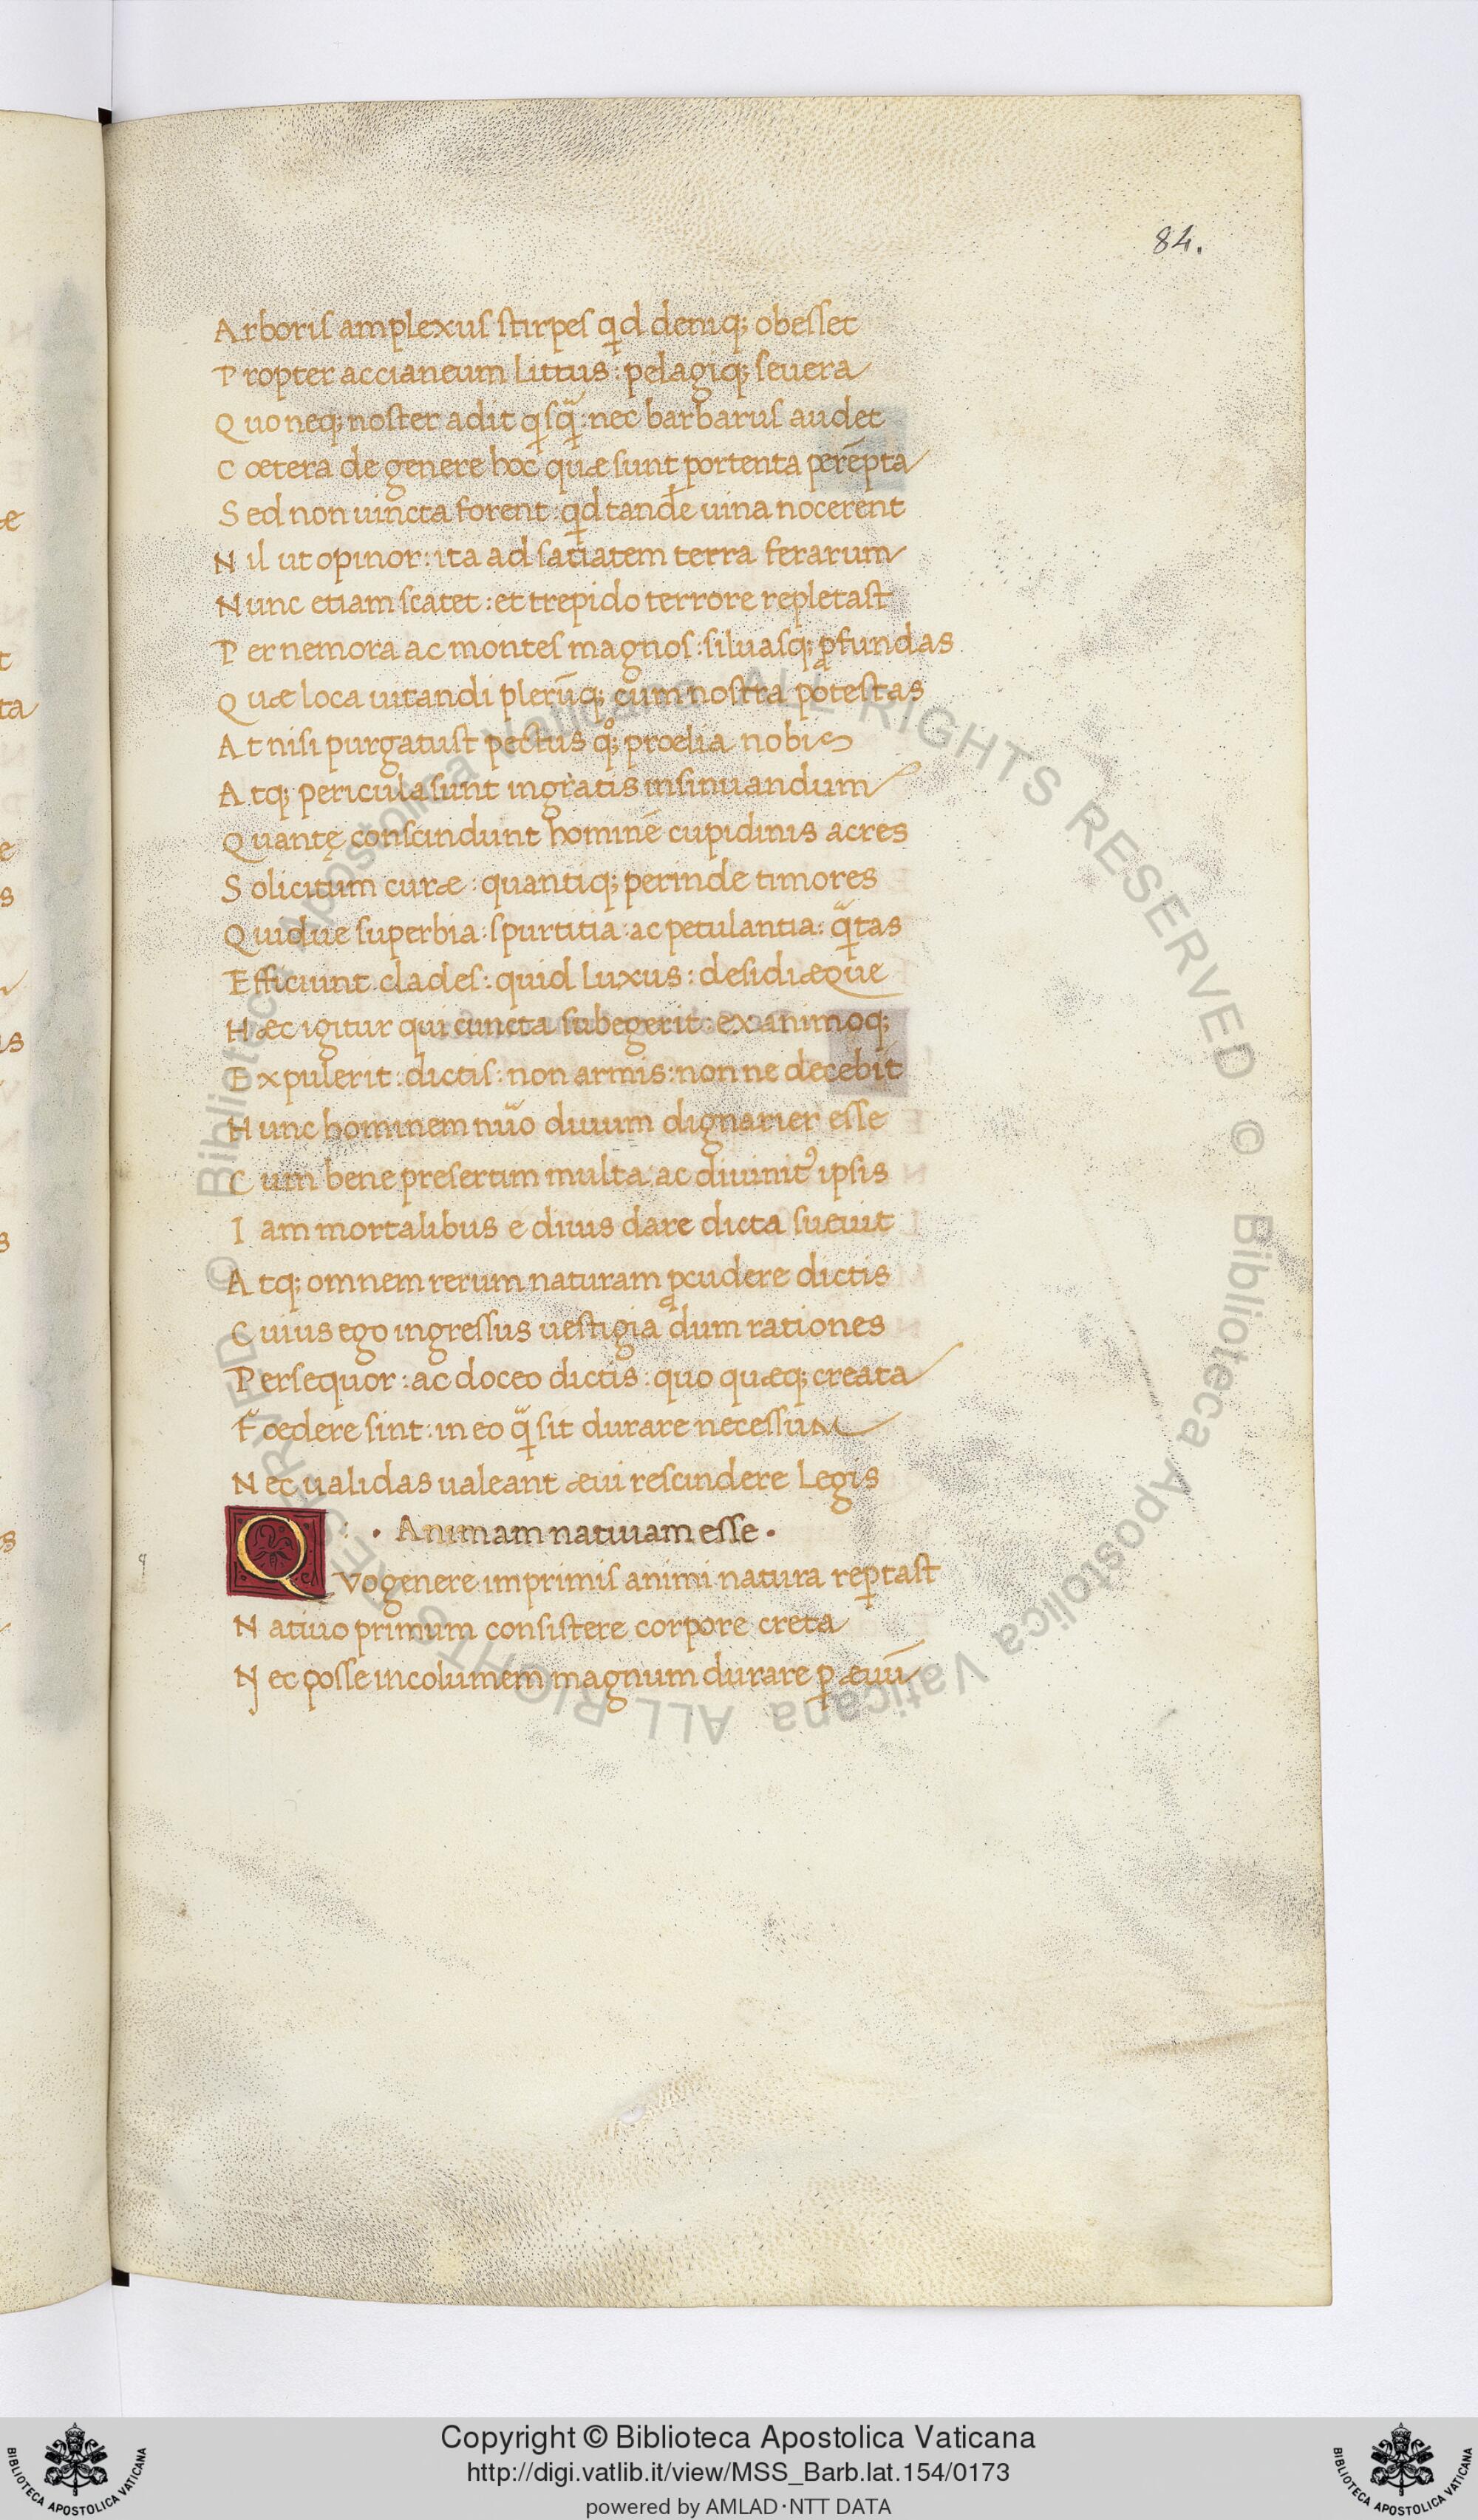 84.
Arboris amplexus stirpes qͥd deniq; obesset
Propter accianeum littus : pelagiq; seuera
Quo neq; noster adit qͥsqᷓ : nec barbarus audet
Cœtera de genere hoc quæ sunt portenta perēpta
Sed non uincta forent : qͥd tandē uina nocerent
Nil ut opinor : ita ad satiatem terra ferarum
Nunc etiam scatet : et trepido terrore repletast
Per nemora ac montes magnos : siluasq; ꝓfundas
Quæ loca uitandi plerūq; cum nostra potestas
At nisi purgatust pectus qͦ; prœlia nobis
Atq; pericula sunt ingratis insinuandum
Quantę conscindunt hominē cupidinis acres
Solicitum curæ : quantiq; perinde timores
Quidue superbia : spurtitia : ac petulantia : qᷓtas
Efficiunt clades : quid luxus : desidiæque
Hæc igitur qui cuncta subegerit : ex animoq;
Expulerit : dictis : non armis : non ne decebit
Hunc hominem nūo diuum dignarier esse
Cum bene presertim multa : ac diuinit᾽ ipsis
Iam mortalibus e diuis dare dicta sueuit
Atq; omnem rerum naturam ꝓcudere dictis
Cuius ego ingressus uestigia dum rationes
Persequor : ac doceo dictis : quo quæq; creata
Fœdere sint : in eo qᷓ sit durare necessum
Nec ualidas ualeant æui rescindere legis
· Animam natiuam esse ·
Quo genere imprimis animi natura reꝑtast
Natiuo primum consistere corpore creta
Nec posse incolumem magnum durare ꝑ æuū
© Biblioteca Apostolica Vaticana ALL RIGHTS RESERVED © Biblioteca Apostolica Vaticana ALL RIGHTS RESERVED
Copyright © Biblioteca Apostolica Vaticana
http://digi.vatlib.it/view/MSS_Barb.lat.154/0173
powered by AMLAD·NTT DATA
BIBLIOTECA APOSTOLICA VATICANA
BIBLIOTECA APOSTOLICA VATICANA